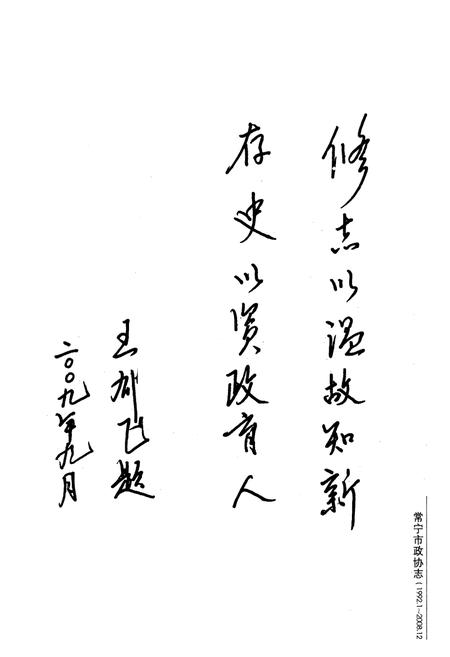 修志以温故知新
存史以资政育人
王雄飞题
二〇〇九年九月
常宁市政协志（1992.1—2008.12